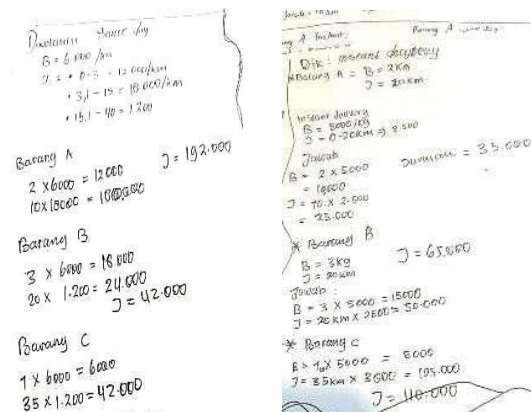 same day
B = 6000 /km
J = • 0-3 = 12000/km
• 3,1 - 15 = 18000/km
• 15,1 - 40 = 1.200
Barang A
J = 192.000
2 x 6000 = 12000
10 x 18000 =
Barang B
3 x 6000 = 18.000
20 x 1.200 = 24.000
J = 42.000
Barang C
1 x 6000 = 6000
35 x 1.200 = 42.000
Barang A
Dik : instant delivery
Barang A = B = 2kg
J = 20km
instant delivery
B = 5000/kg
J = 0-20km => 2.500
Jawab
B = 2 x 5000
= 10000
J = 10 x 2.500
= 25.000
= 35.000
* Barang B
B = 3kg
J = 20km
J = 65.000
Jawab :
B = 3 x 5000 = 15000
J = 20km x 2500 = 50.000
* Barang C
B = 1 x 5000 = 5000
J = 35km x 3000 = 105.000
J = 110.000